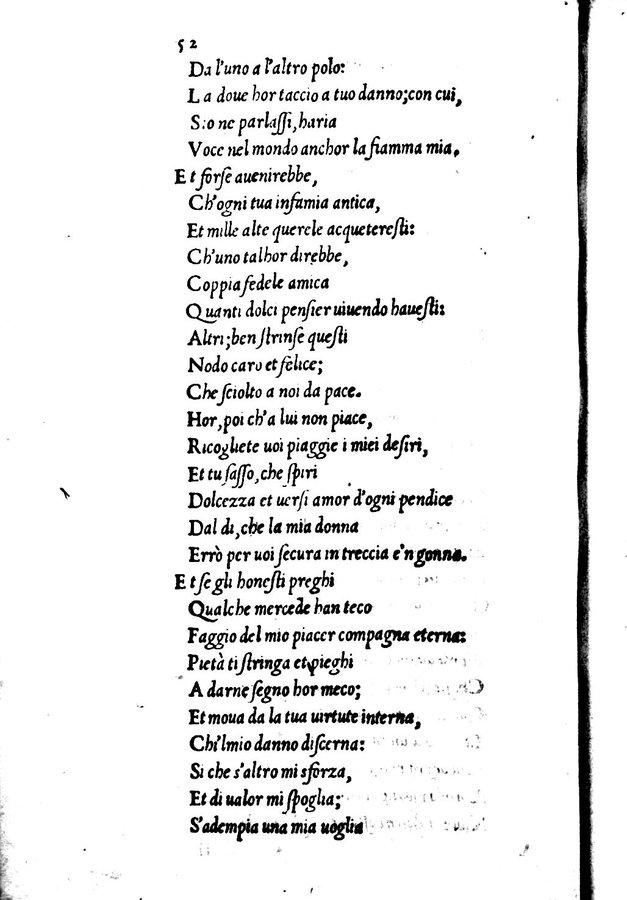 52
Da l'uno a l'altro polo:
La doue hor taccio a tuo danno; con cui,
S'io ne parlaſſi, haria
Voce nel mondo anchor la fiamma mia.
Et forſe auenirebbe,
Ch'ogni tua infamia antica,
Et mille alte querele acquetereſti:
Ch'uno talhor direbbe,
Coppia fedele amica
Quanti dolci penſier uiuendo haueſti:
Altri; ben ſtrinſe queſti
Nodo caro et felice;
Che ſciolto a noi da pace.
Hor, poi ch'a lui non piace,
Ricogliete uoi piaggie i miei deſiri,
Et tu ſaſſo, che ſpiri
Dolcezza et uerſi amor d'ogni pendice
Dal di, che la mia donna
Errò per uoi ſecura in treccia e'n gonna.
Et ſe gli honeſti preghi
Qualche mercede han teco
Faggio del mio piacer compagna eterna:
Pietà ti ſtringa et pieghi
A darne ſegno hor meco;
Et moua da la tua uirtute interna,
Ch'il mio danno diſcerna:
Si che s'altro mi sforza,
Et di ualor mi ſpoglia;
S'adempia una mia uoglia